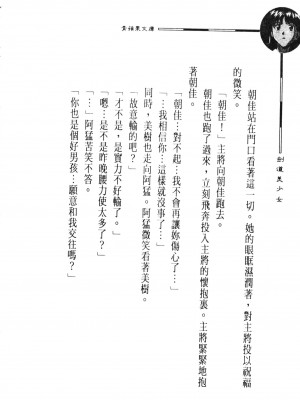 青蘋果文庫
劍道美少女
朝佳站在門口看著這一切。她的眼眶濕潤著，對主將投以祝福
的微笑。
「朝佳！」主將向朝佳奔去。
朝佳也跑了過來，立刻飛奔投入主將的懷抱裏。主將緊緊地抱
著朝佳。
「朝佳…對不起…我不會再讓妳傷心了…」
「…我相信你…這樣就沒事了…」
同時，美樹也走向阿猛。阿猛微笑看著美樹。
「故意輸的吧？」
「才不是，是實力不好輸了。」
「嗯…是不是昨晚腰力使太多了？」
「…」阿猛苦笑不答。
「你也是個好男孩…願意和我交往嗎？」